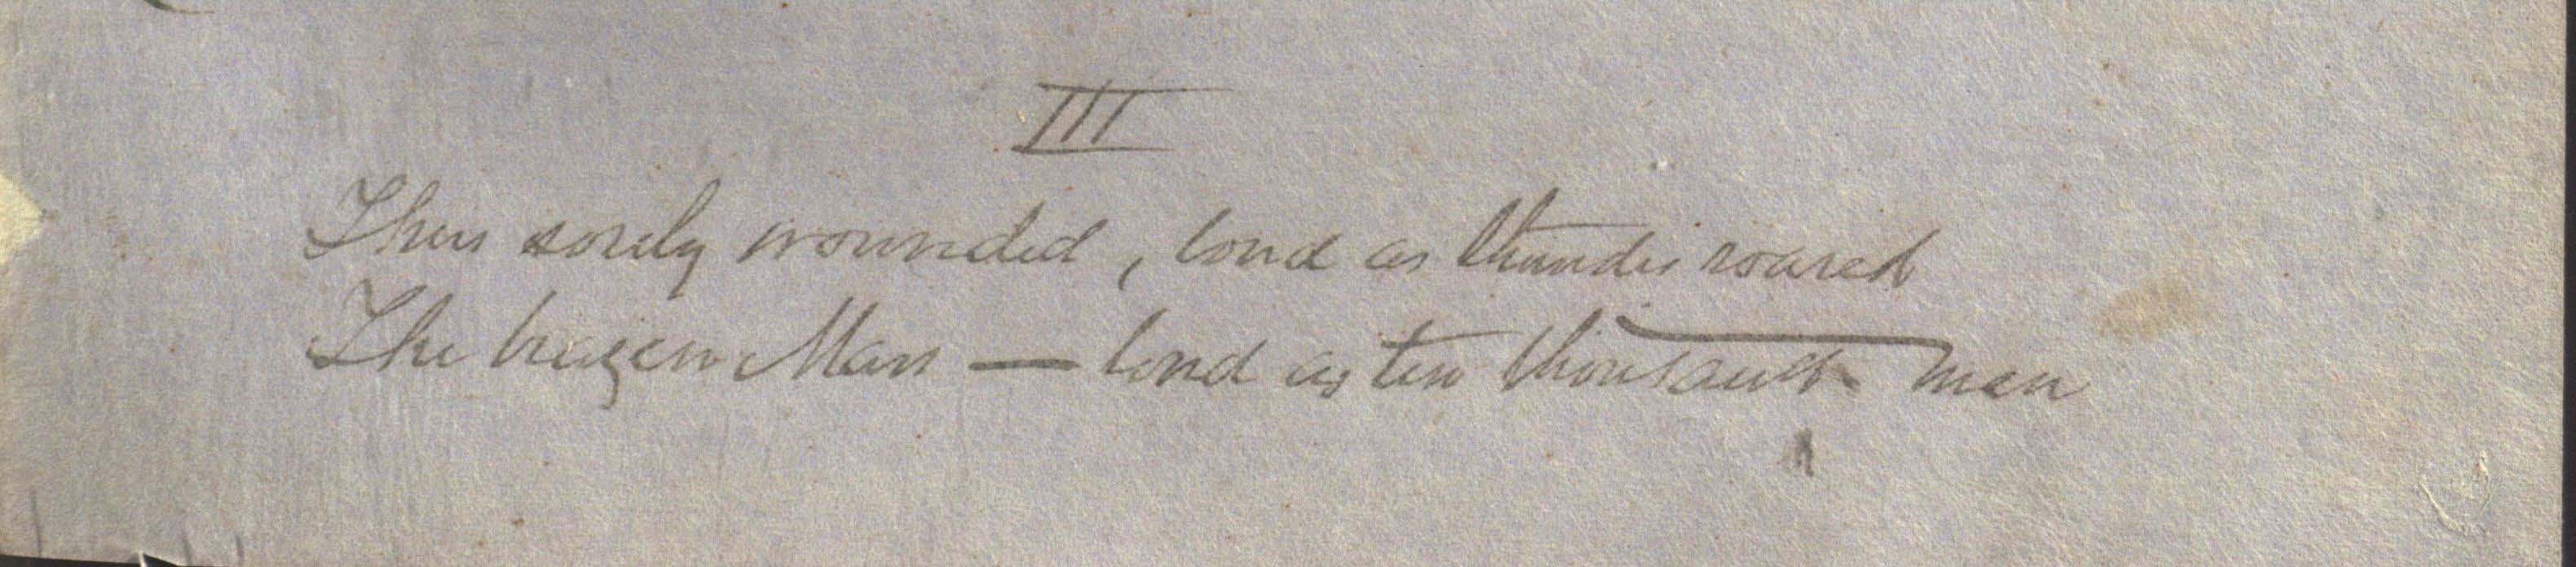 III
Then sorely wounded, loud as thunder roared
The brazen Mars — loud as ten thousand men